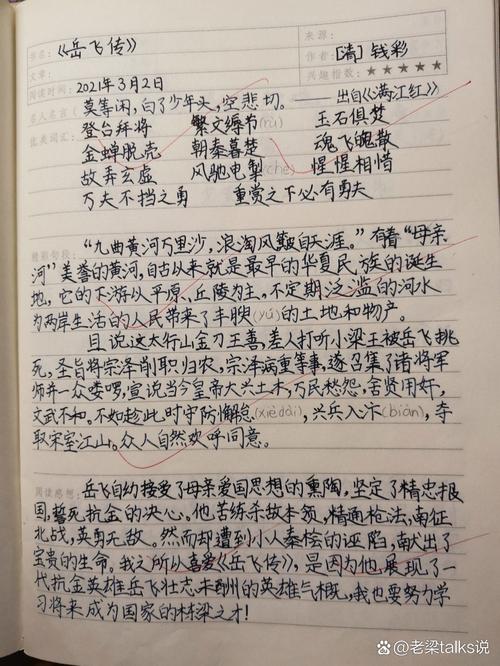 书名：《岳飞传》
来源：
作者：[清]钱彩
文章：
阅读时间：2021年3月2日
兴趣指数：★★★★★
名人名言：莫等闲，白了少年头，空悲切。——出自《满江红》
优美词汇：登台拜将 繁文缛节(rù) 玉石俱焚
金蝉脱壳 朝秦暮楚 魂飞魄散
故弄玄虚 风驰电掣(chè) 惺惺相惜
万夫不挡之勇 重赏之下必有勇夫
精彩句段：“九曲黄河万里沙，浪淘风簸自天涯。”有着“母亲
河”美誉的黄河，自古以来就是最早的华夏民族的诞生
地，它的下游以平原、丘陵为主，不定期泛滥的河水
为两岸生活的人民带来了丰腴(yú)的土地和物产。
且说这太行山金刀王善，差人打听小梁王被岳飞挑
死，圣旨将宗泽削职归农，宗泽病重等事，遂召集了诸将军
师并一众喽啰，宣说当今皇帝大兴土木，万民愁怨，舍贤用奸，
文武不和。不如趁此时守防懈怠(xièdài)，兴兵入汴(biàn)，夺
取宋室江山。众人自然欢呼同意。
阅读感想：岳飞自幼接受了母亲爱国思想的熏陶，坚定了精忠报
国，誓死抗金的决心。他苦练杀敌本领，精通枪法，南征
北战，英勇无敌。然而却遭到小人秦桧的诬陷，献出了
宝贵的生命。我之所以喜爱《岳飞传》，是因为他展现了一
代抗金英雄岳飞壮志未酬的英雄气概，我也要努力学
习将来成为国家的栋梁之才！
@老梁talks说